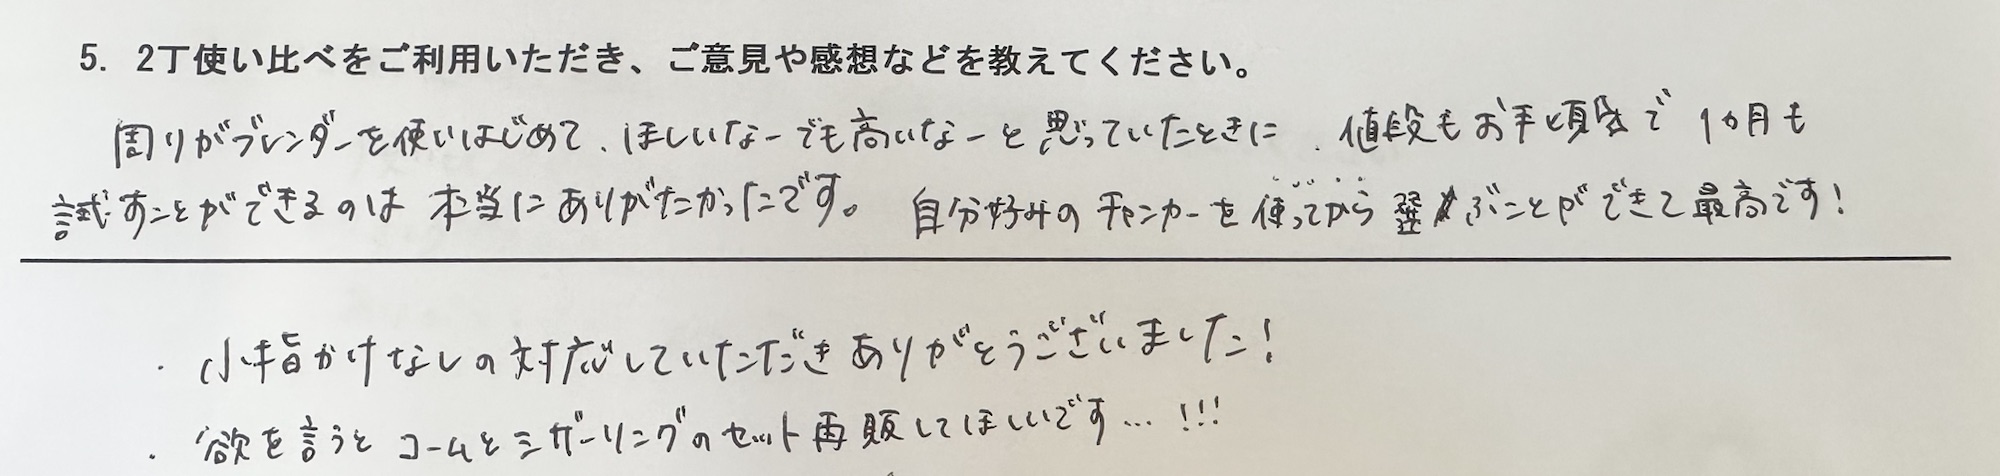 5. 2丁使い比べをご利用いただき、ご意見や感想などを教えてください。
周りがブレンダーを使いはじめて、ほしいなーでも高いなーと思っていたときに、値段もお手頃で1ヵ月も
試すことができるのは本当にありがたかったです。自分好みのチャンカーを使ってから選ぶことができて最高です!
・小指かけなしの対応していただきありがとうございました!
・欲を言うとコームとシザーリングのセット再販してほしいです…!!!